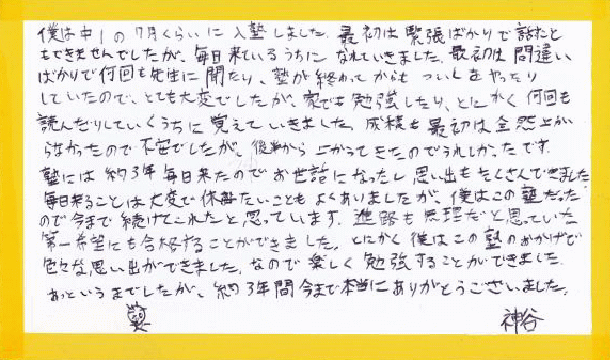 僕は中1の7月くらいに入塾しました。最初は緊張ばかりで話すこ
ともできませんでしたが、毎日来ているうちになれていきました。最初は間違い
ばかりで何回も先生に聞たり、塾が終わってからもついしをやったり
していたので、とても大変でしたが、家でも勉強したり、とにかく何回も
読んだりしていくうちに覚えていきました。成績も最初は全然上が
らなかったので不安でしたが、後半から上がってきたのでうれしかったです。
塾には約3年毎日来たのでお世話になったし思い出もたくさんできました。
毎日来ることは大変で休みたいこともよくありましたが、僕はこの塾だった
ので今まで続けてこれたと思っています。進路も無理だと思っていた
第一希望にも合格することができました。とにかく僕はこの塾のおかげで
色々な思い出ができました。なので楽しく勉強することができました。
あっというまでしたが、約3年間今まで本当にありがとうございました。
神谷